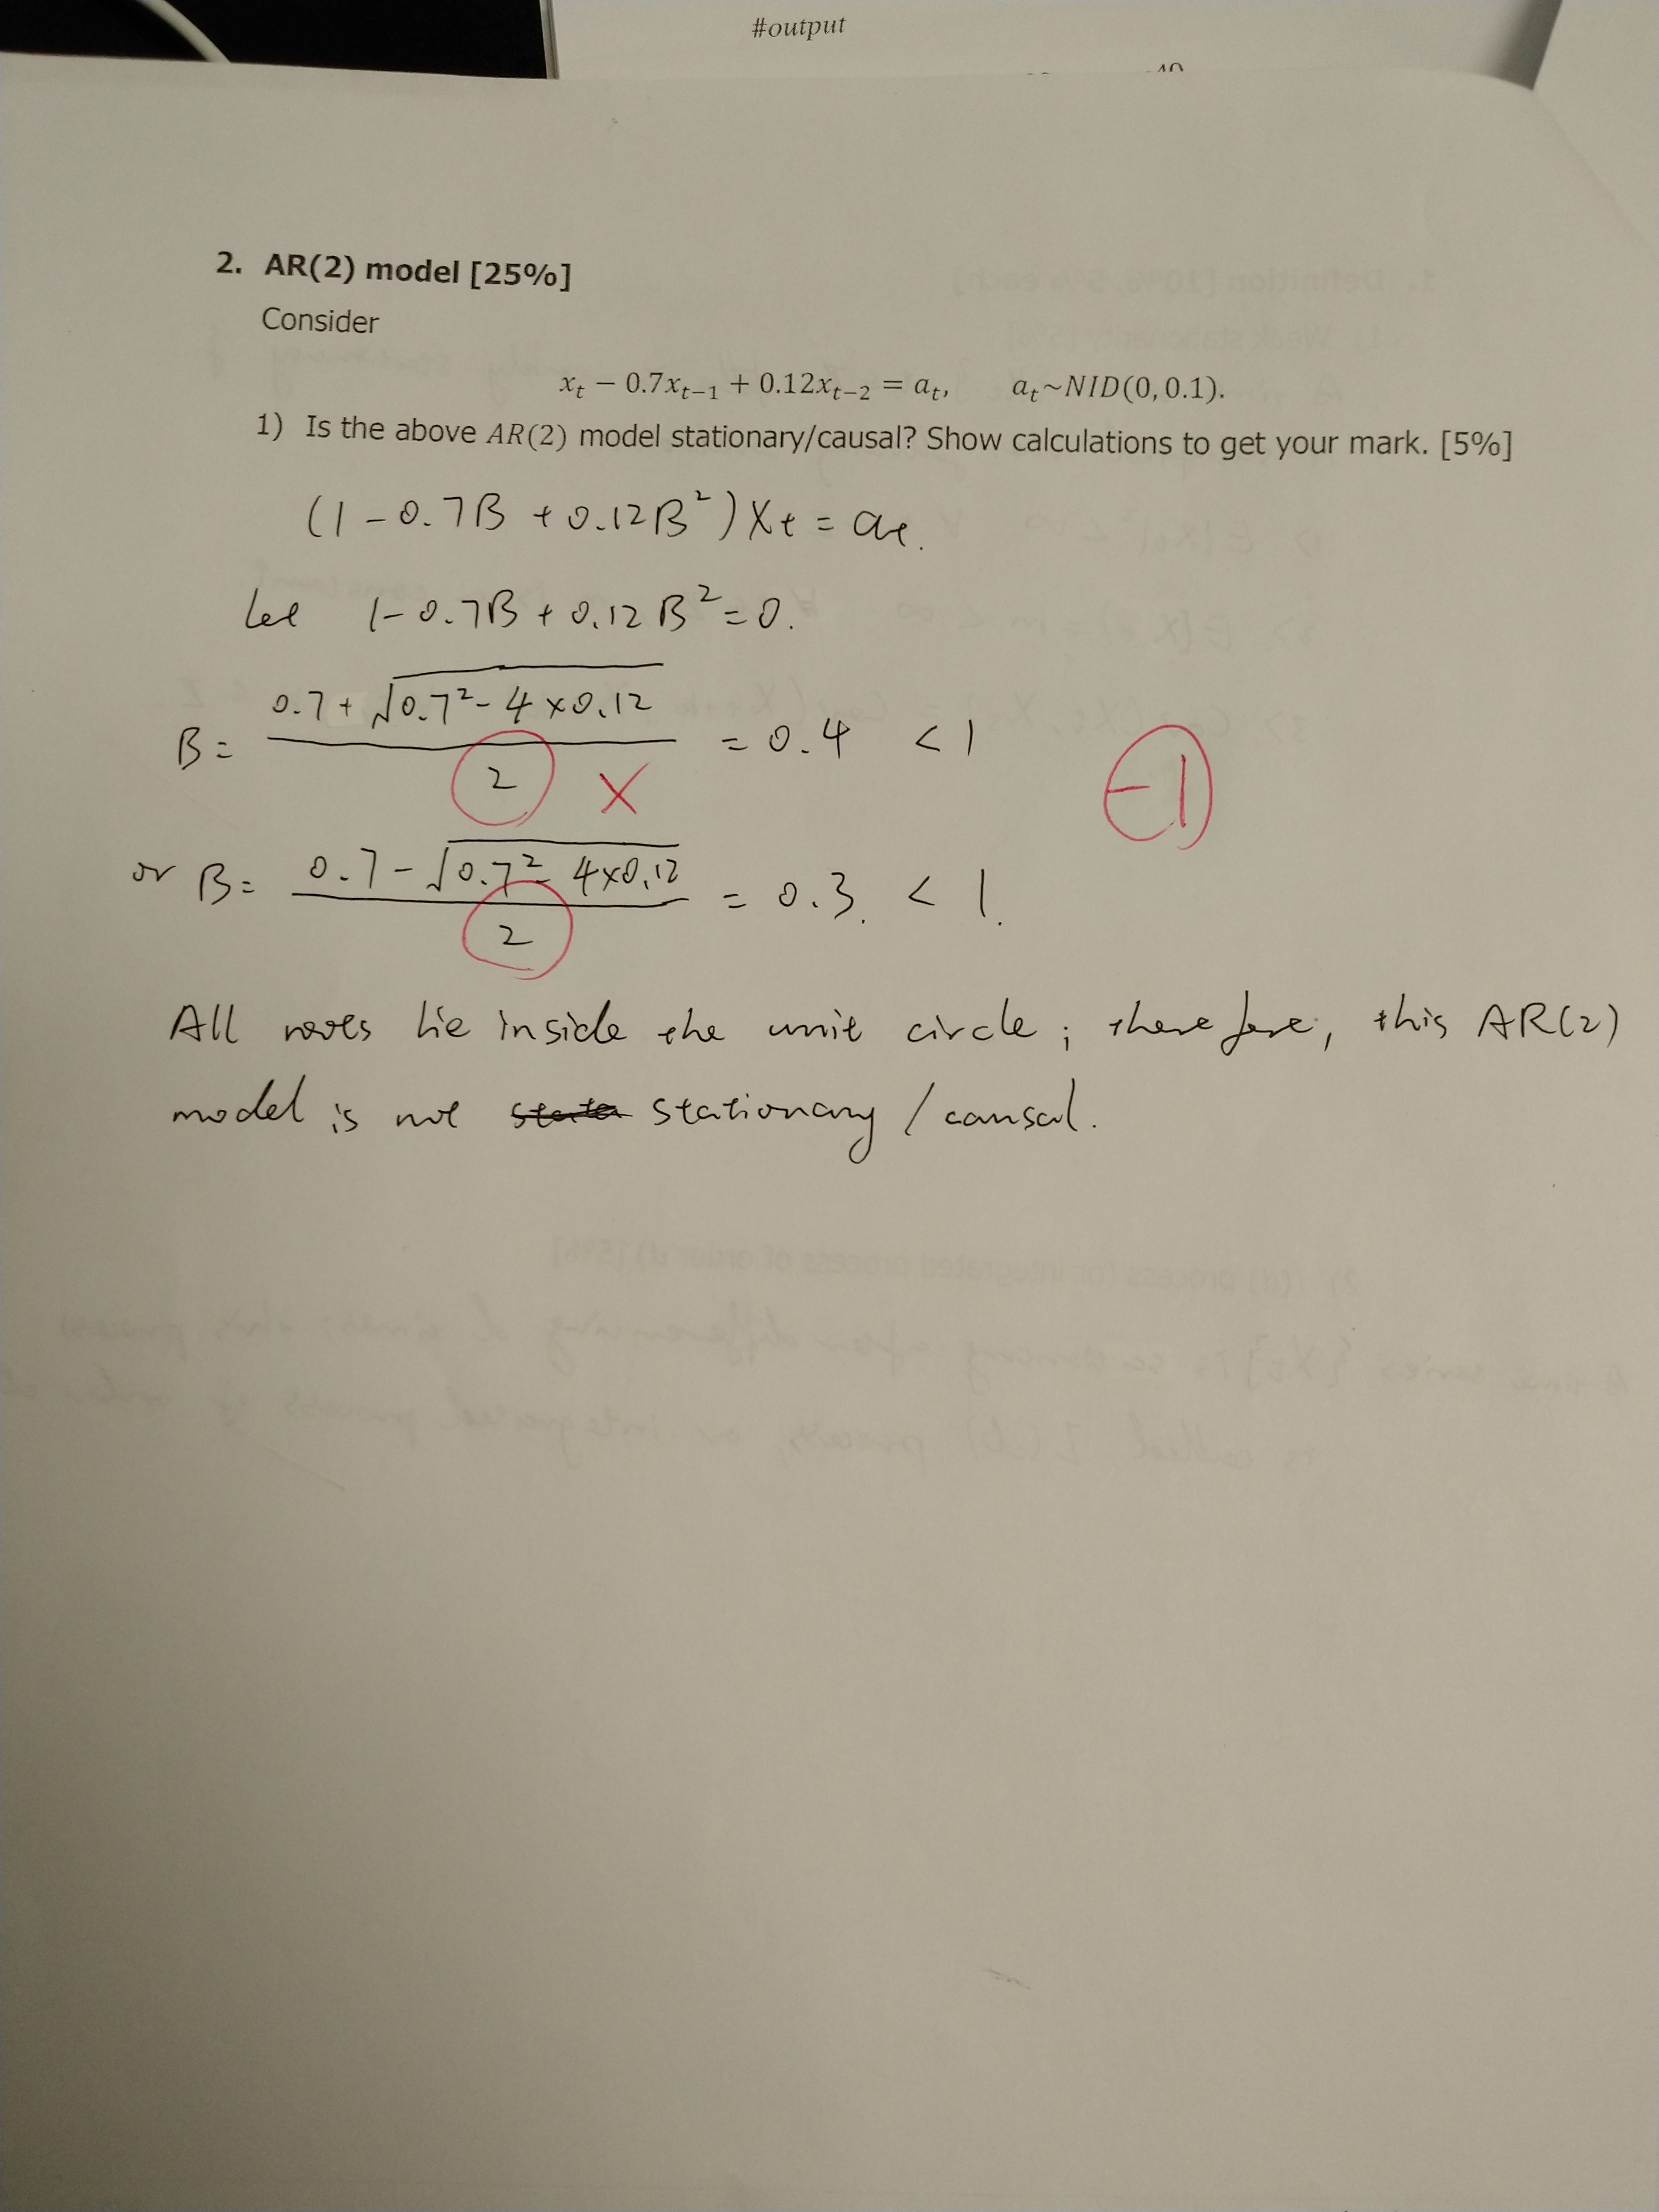 #output
2. AR(2) model [25%]
Consider
xₜ − 0.7xₜ₋₁ + 0.12xₜ₋₂ = aₜ, aₜ~NID(0, 0.1).
1) Is the above AR(2) model stationary/causal? Show calculations to get your mark. [5%]
(1 - 0.7B + 0.12B²) Xt = at.
Let 1 - 0.7B + 0.12B² = 0.
B = (0.7 + √(0.7² - 4 × 0.12)) / 2 = 0.4 < 1
X
-1
or B = (0.7 - √(0.7² - 4×0.12)) / 2 = 0.3. < 1.
All roots lie inside the unit circle; therefore, this AR(2)
model is not stationary / causal.